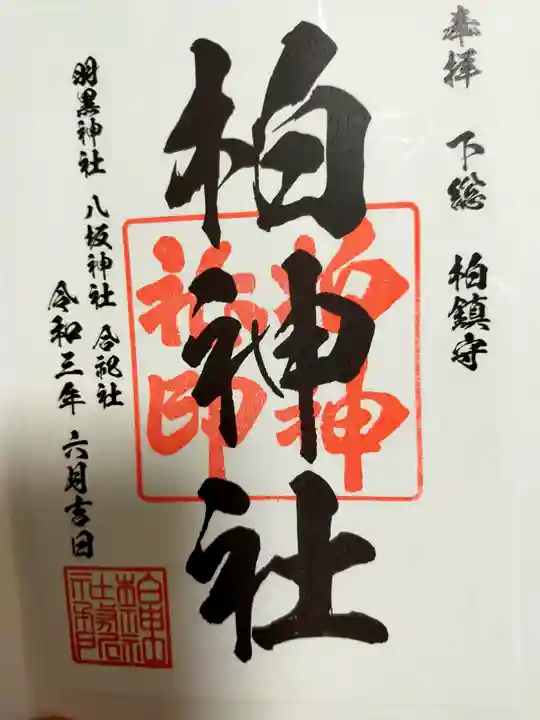 奉拝 下総 柏鎮守
柏神社
柏神
社印
羽黒神社 八坂神社 合祀社
令和三年 六月吉日